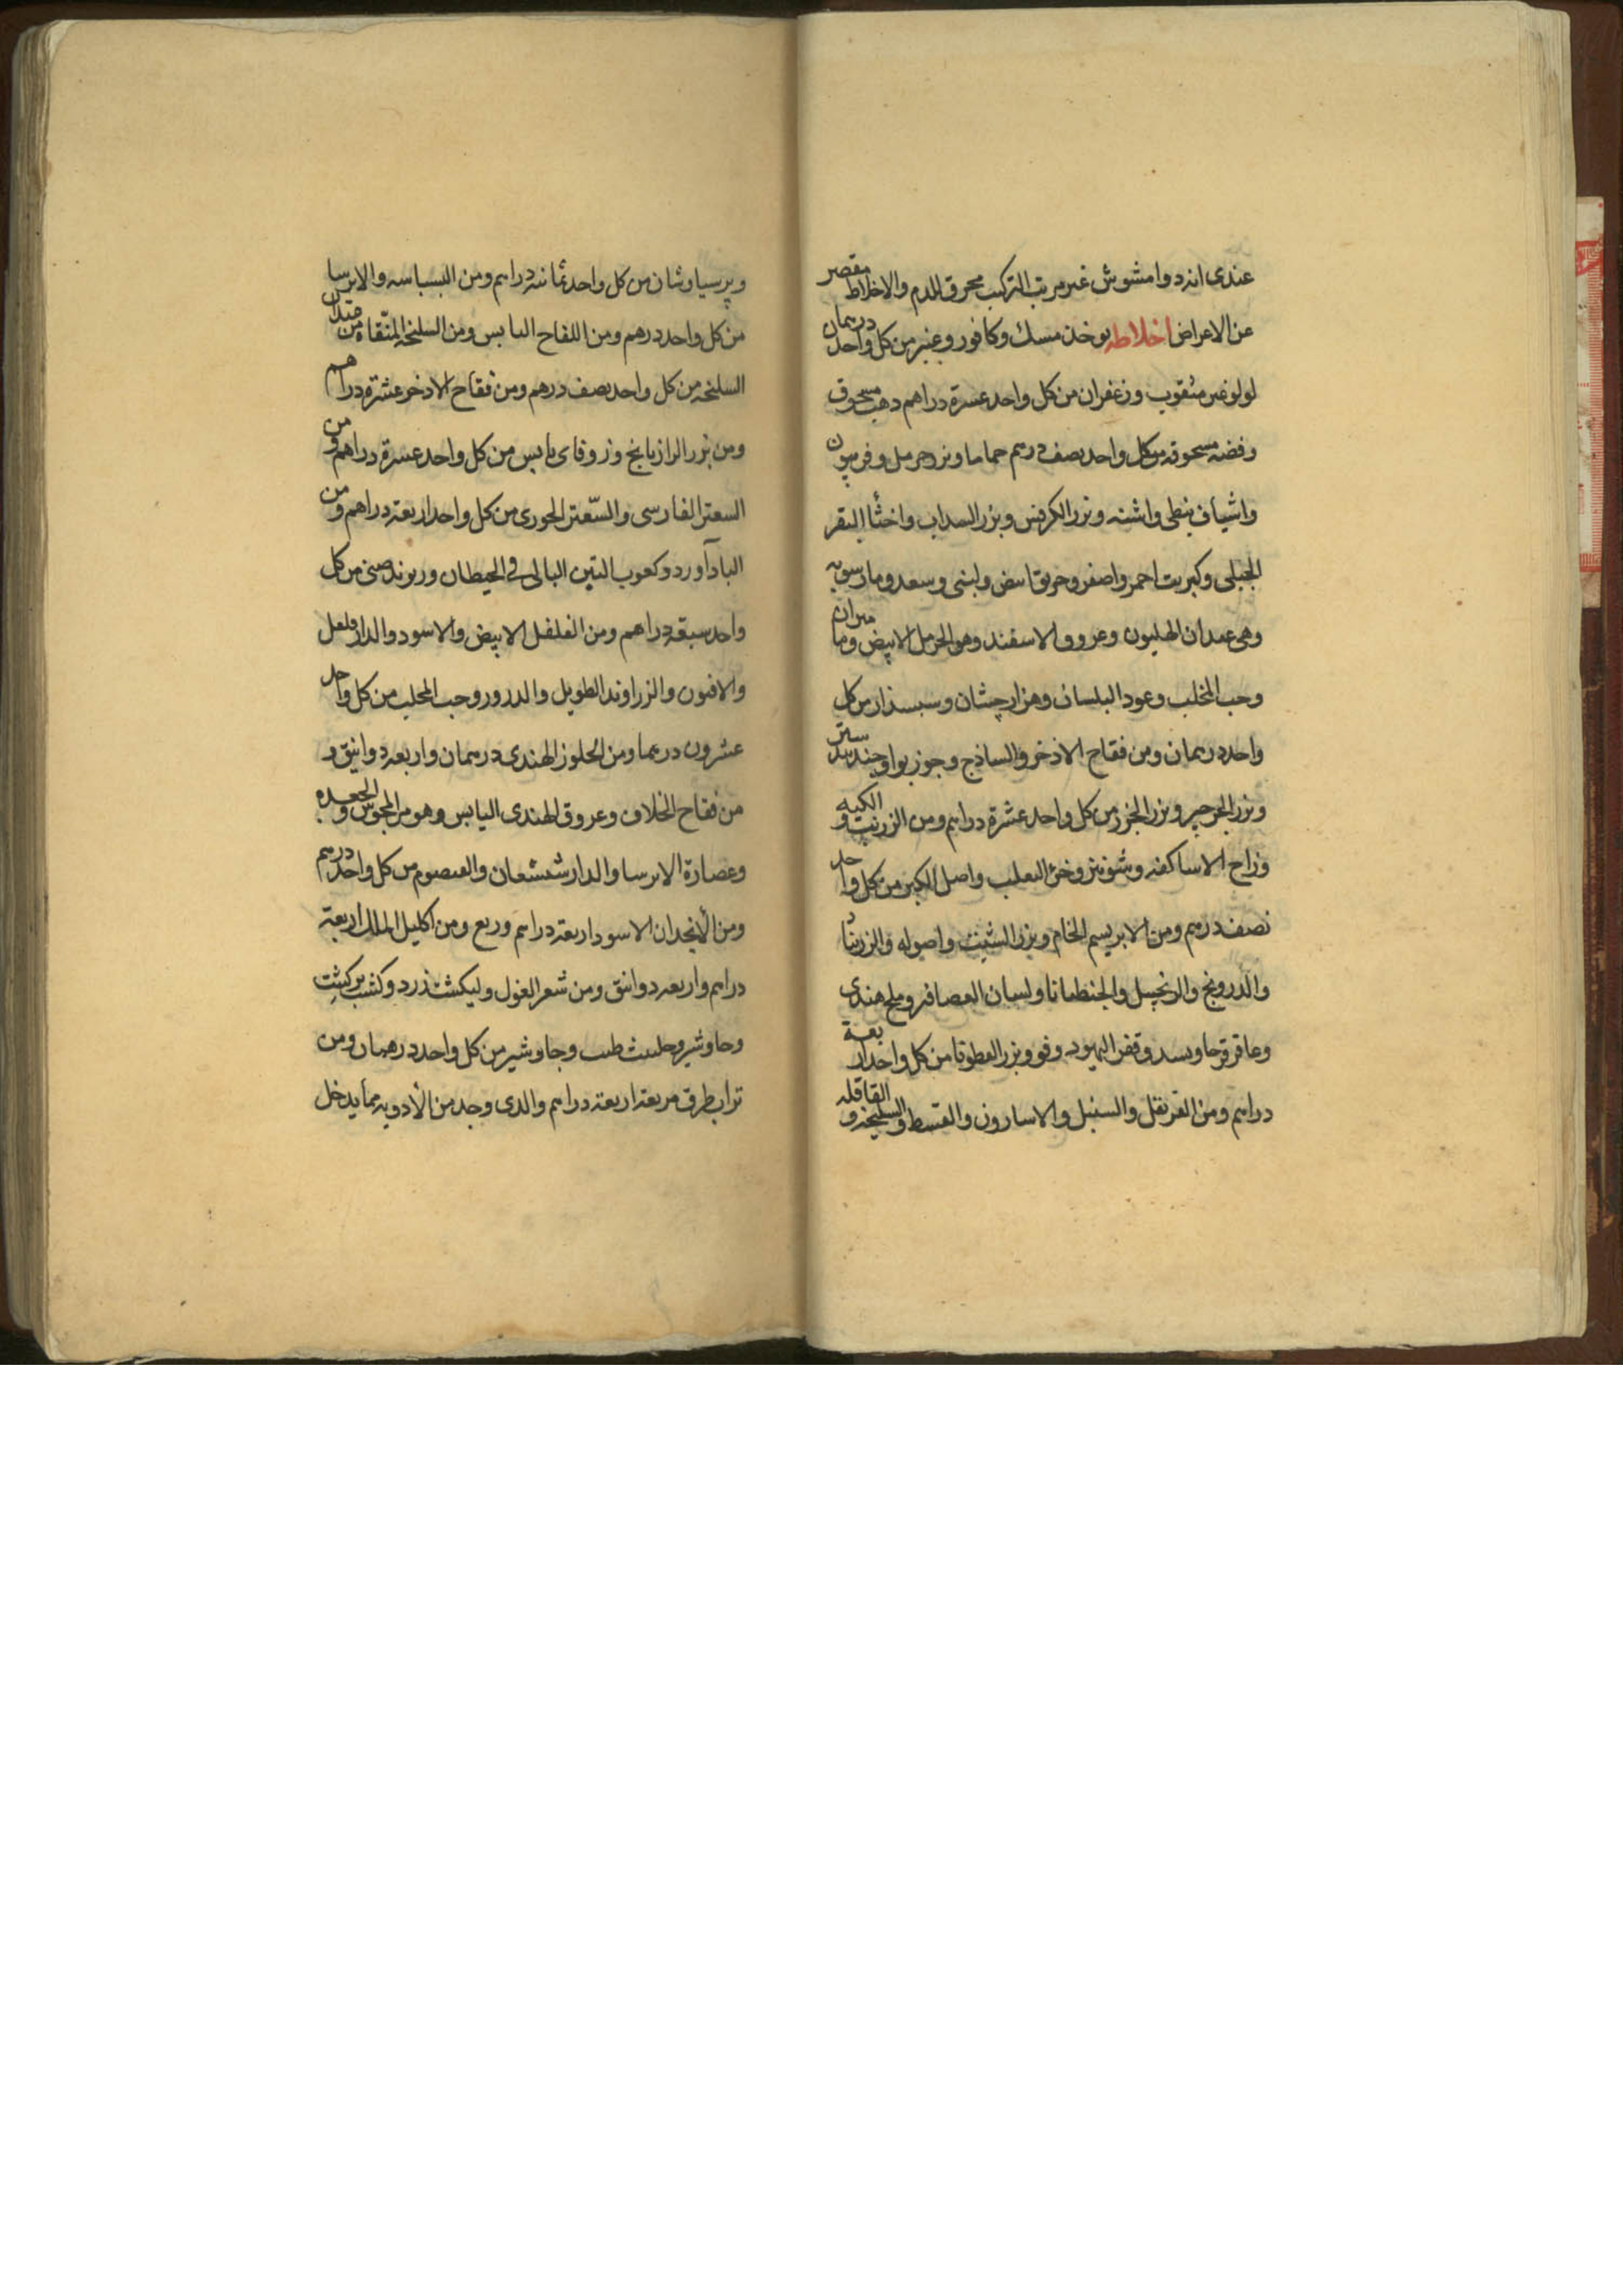 عندى انه دوا مشوش غير مرتب التركيب محرق للدم والاخلاط مقصر
عن الاعراض اخلاطه يوخذ مسك وكافور وعنبر من كل واحد درهمان
لولو غير مثقوب وزعفران من كل واحد عشرة دراهم ذهب مسحوق
وفضه مسحوقه من كل واحد نصف درهم حماما وبزر حرمل وفربيون
واشياف نبطى واشنه وبزر الكرفس وبزر السداب واخثا البقر
الجبلى وكبريت احمر واصفر وخربق ابيض ولبنى وسعد ومارسويه
وهى عيدان الهليون وعروق الاسفند وهو الحرمل الابيض وما ميران
وحب المخلب وعود البلسان وهزارجشان وسبسذار من كل
واحد درهمان ومن فقاح الاذخر والساذج وجوزبوا وجندبيدستر
وبزر الجرجير وبزر الجزر من كل واحد عشرة دراهم ومن الزرنب والكيه
وزاج الاساكفه وشونيز وخرى الثعلب واصل الكبر من كل واحد
نصف درهم ومن الابريسم الخام وبزر الشبت واصوله والزرنباد
والدرونج والزنجبيل والجنطيانا ولسان العصافير وملح هندى
وعاقرقرحا وبسد وقفر اليهود وفو وبزر القطونا من كل واحد اربعة
دراهم ومن القرنفل والسنبل والاسارون والقسط والسليخه والقاقله
وبرسياوشان من كل واحد ثمانية دراهم ومن البسباسه والايرسا
من كل واحد درهم ومن اللفاح اليابس ومن السليخه المنقاه من
السليخه من كل واحد نصف درهم ومن فقاح الاذخر عشرة دراهم
ومن بزر الرازيانج وزوفاى يابس من كل واحد عشرة دراهم ومن
السعتر الفارسى والسّعتر الحورى من كل واحد اربعة دراهم ومن
الباداورد وكعوب التين البالى فى الحيطان وريوند صينى من كل
واحد سبعة دراهم ومن الفلفل الابيض والاسود والدارفلفل
والافيون والزراوند الطويل والدرور وحب المحلب من كل واحد
عشرون درهما ومن الحلوز الهندى درهمان واربعه دوانيق و
من فقاح الخلاف وعروق الهندى اليابس وهو مر المجوس والجعده
وعصارة الايرسا والدارشيشعان والقيصوم من كل واحد درهم
ومن الأنجدان الاسود اربعة دراهم وربع ومن اكليل الملك اربعة
دراهم واربعه دوانق ومن شعر الغول وليكشت ذرد وكشت بركشت
وجاوشير وحلتيت طيب وجاوشير من كل واحد درهمان ومن
تراب طرق مربعة اربعة دراهم والذى وجد من الأدويه مما يدخل